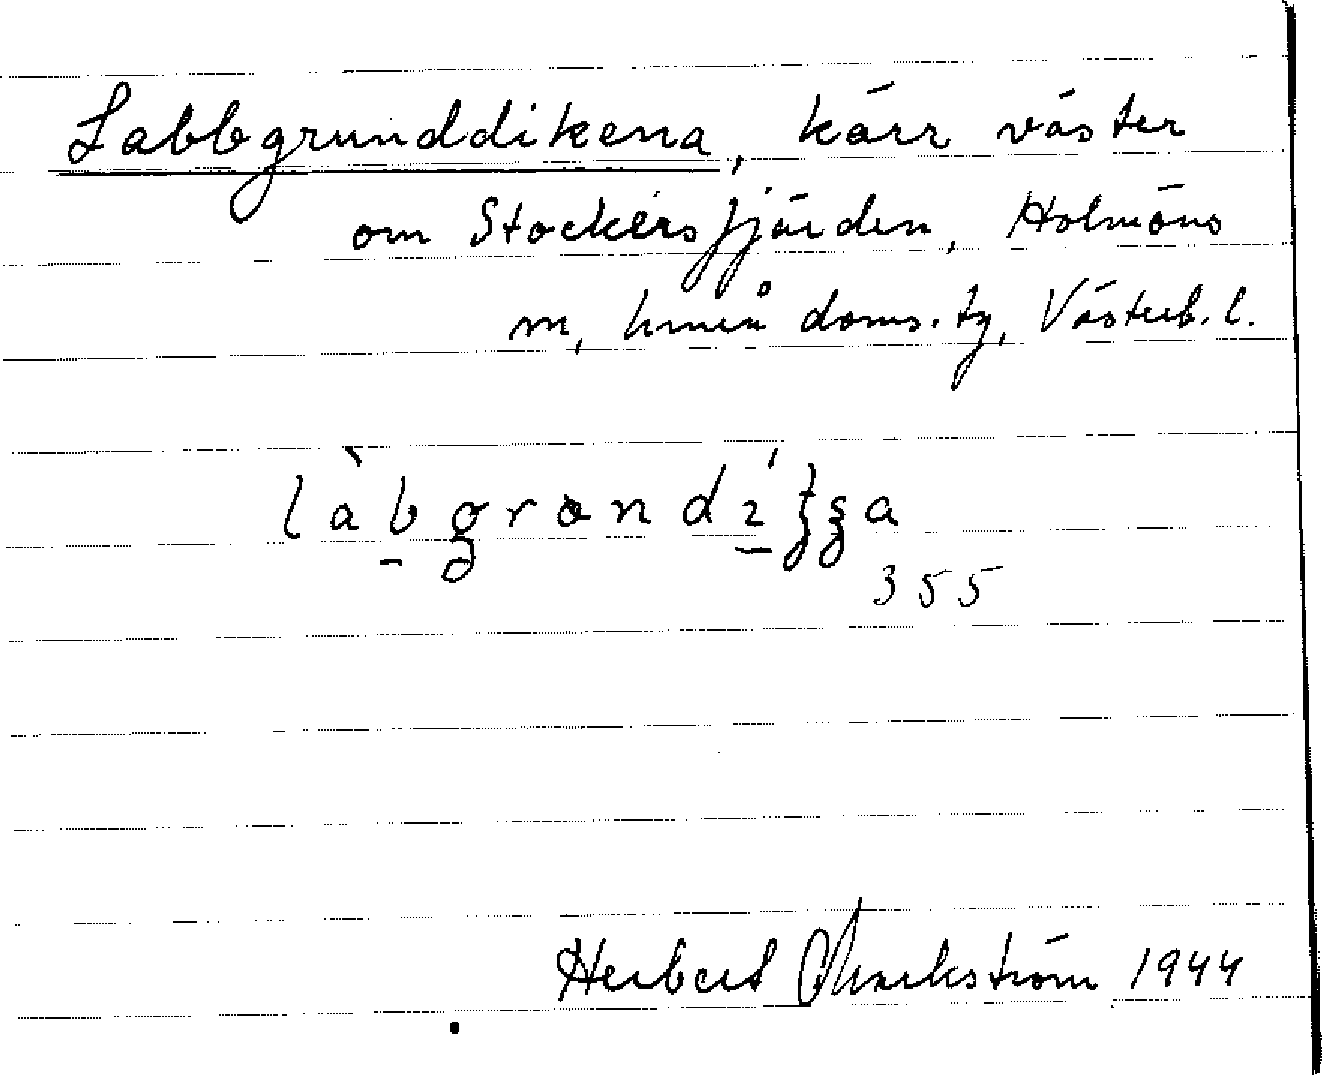 Labbgrunddikena, kärr väster
om Stockersfjärden, Holmöns
m, Umeå doms. tg, Västerb. l.
355
Herbert Markström 1944